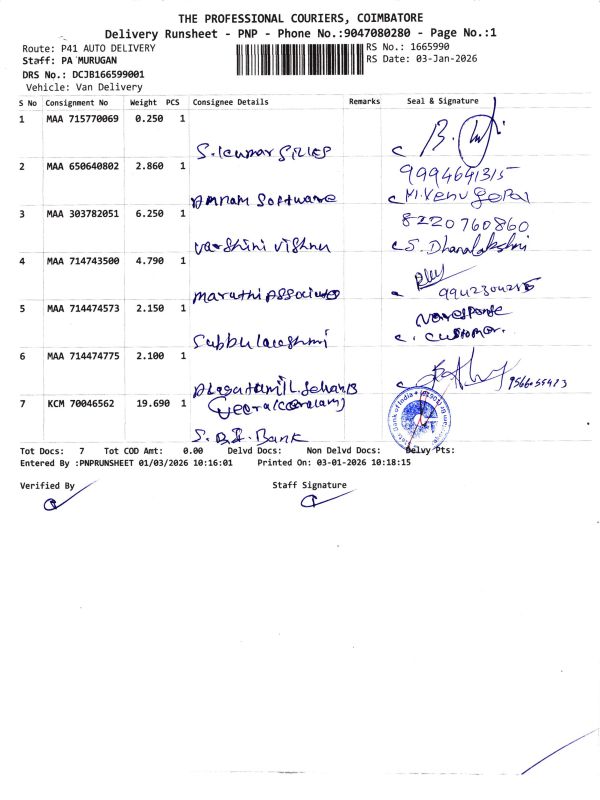 THE PROFESSIONAL COURIERS, COIMBATORE
Delivery Runsheet - PNP - Phone No.:9047080280 - Page No.:1
Route: P41 AUTO DELIVERY
RS No.: 1665990
Staff: PA MURUGAN
RS Date: 03-Jan-2026
DRS No.: DCJB166599001
Vehicle: Van Delivery
S No Consignment No Weight PCS Consignee Details Remarks Seal & Signature
1 MAA 715770069 0.250 1
S. kumar
2 MAA 650640802 2.860 1
9994641315
Amnam Software
c M. Venu gopal
3 MAA 303782051 6.250 1
8220760860
Varshini Vishnu
c S. Dhanalakshmi
4 MAA 714743500 4.790 1
Maruthi Associates
5 MAA 714474573 2.150 1
Noresponse
Subbulakshmi
c. customer.
6 MAA 714474775 2.100 1
7 KCM 70046562 19.690 1
State Bank of India
S.B.I. Bank
Tot Docs: 7 Tot COD Amt: 0.00 Delvd Docs: Non Delvd Docs: Delvy Pts:
Entered By :PNPRUNSHEET 01/03/2026 10:16:01 Printed On: 03-01-2026 10:18:15
Verified By Staff Signature